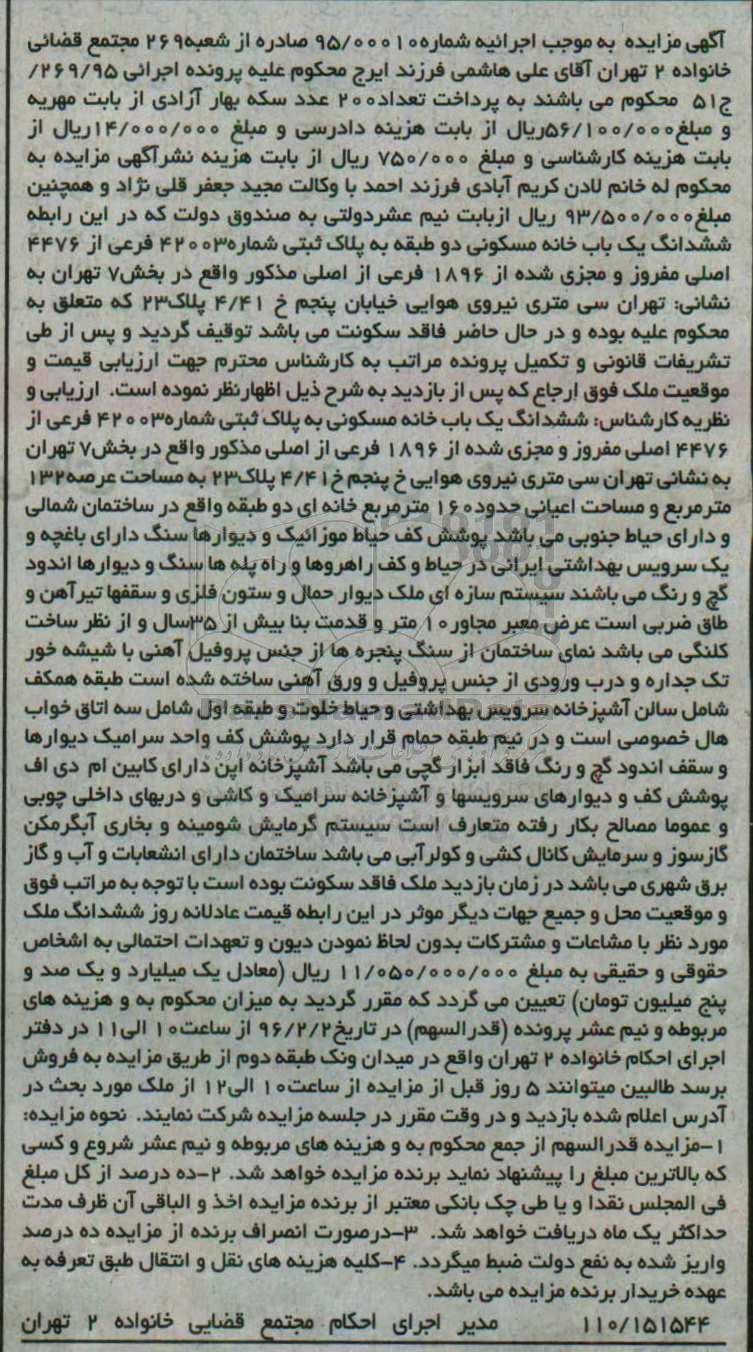 آگهی مزایده به موجب اجرائیه شماره۹۵/۰۰۰۱۰ صادره از شعبه۲۶۹ مجتمع قضائی
خانواده ۲ تهران آقای علی هاشمی فرزند ایرج محکوم علیه پرونده اجرائی ۲۶۹/۹۵/
ج۵۱ محکوم می باشند به پرداخت تعداد۲۰۰ عدد سکه بهار آزادی از بابت مهریه
و مبلغ۵۶/۱۰۰/۰۰۰ریال از بابت هزینه دادرسی و مبلغ ۱۴/۰۰۰/۰۰۰ریال از
بابت هزینه کارشناسی و مبلغ ۷۵۰/۰۰۰ ریال از بابت هزینه نشرآگهی مزایده به
محکوم له خانم لادن کریم آبادی فرزند احمد با وکالت مجید جعفر قلی نژاد و همچنین
مبلغ۹۳/۵۰۰/۰۰۰ ریال ازبابت نیم عشردولتی به صندوق دولت که در این رابطه
ششدانگ یک باب خانه مسکونی دو طبقه به پلاک ثبتی شماره۴۲۰۰۳ فرعی از ۴۴۷۶
اصلی مفروز و مجزی شده از ۱۸۹۶ فرعی از اصلی مذکور واقع در بخش۷ تهران به
نشانی: تهران سی متری نیروی هوایی خیابان پنجم خ ۴/۴۱ پلاک۲۳ که متعلق به
محکوم علیه بوده و در حال حاضر فاقد سکونت می باشد توقیف گردید و پس از طی
تشریفات قانونی و تکمیل پرونده مراتب به کارشناس محترم جهت ارزیابی قیمت و
موقعیت ملک فوق ارجاع که پس از بازدید به شرح ذیل اظهارنظر نموده است. ارزیابی و
نظریه کارشناس: ششدانگ یک باب خانه مسکونی به پلاک ثبتی شماره۴۲۰۰۳ فرعی از
۴۴۷۶ اصلی مفروز و مجزی شده از ۱۸۹۶ فرعی از اصلی مذکور واقع در بخش۷ تهران
به نشانی تهران سی متری نیروی هوایی خ پنجم خ۴/۴۱ پلاک۲۳ به مساحت عرصه۱۳۲
مترمربع و مساحت اعیانی حدود۱۶۰ مترمربع خانه ای دو طبقه واقع در ساختمان شمالی
و دارای حیاط جنوبی می باشد پوشش کف حیاط موزائیک و دیوارها سنگ دارای باغچه و
یک سرویس بهداشتی ایرانی در حیاط و کف راهروها و راه پله ها سنگ و دیوارها اندود
گچ و رنگ می باشند سیستم سازه ای ملک دیوار حمال و ستون فلزی و سقفها تیرآهن و
طاق ضربی است عرض معبر مجاور۱۰ متر و قدمت بنا بیش از ۳۵سال و از نظر ساخت
کلنگی می باشد نمای ساختمان از سنگ پنجره ها از جنس پروفیل آهنی با شیشه خور
تک جداره و درب ورودی از جنس پروفیل و ورق آهنی ساخته شده است طبقه همکف
شامل سالن آشپزخانه سرویس بهداشتی و حیاط خلوت و طبقه اول شامل سه اتاق خواب
هال خصوصی است و در نیم طبقه حمام قرار دارد پوشش کف واحد سرامیک دیوارها
و سقف اندود گچ و رنگ فاقد ابزار گچی می باشد آشپزخانه اپن دارای کابین ام دی اف
پوشش کف و دیوارهای سرویسها و آشپزخانه سرامیک و کاشی و دربهای داخلی چوبی
و عموما مصالح بکار رفته متعارف است سیستم گرمایش شومینه و بخاری آبگرمکن
گازسوز و سرمایش کانال کشی و کولرآبی می باشد ساختمان دارای انشعابات و آب و گاز
برق شهری می باشد در زمان بازدید ملک فاقد سکونت بوده است با توجه به مراتب فوق
و موقعیت محل و جمیع جهات دیگر موثر در این رابطه قیمت عادلانه روز ششدانگ ملک
مورد نظر با مشاعات و مشترکات بدون لحاظ نمودن دیون و تعهدات احتمالی به اشخاص
حقوقی و حقیقی به مبلغ ۱۱/۰۵۰/۰۰۰/۰۰۰ ریال (معادل یک میلیارد و یک صد و
پنج میلیون تومان) تعیین می گردد که مقرر گردید به میزان محکوم به و هزینه های
مربوطه و نیم عشر پرونده (قدرالسهم) در تاریخ۹۶/۲/۲ از ساعت۱۰ الی۱۱ در دفتر
اجرای احکام خانواده ۲ تهران واقع در میدان ونک طبقه دوم از طریق مزایده به فروش
برسد طالبین میتوانند ۵ روز قبل از مزایده از ساعت۱۰ الی۱۲ از ملک مورد بحث در
آدرس اعلام شده بازدید و در وقت مقرر در جلسه مزایده شرکت نمایند. نحوه مزایده:
۱-مزایده قدرالسهم از جمع محکوم به و هزینه های مربوطه و نیم عشر شروع و کسی
که بالاترین مبلغ را پیشنهاد نماید برنده مزایده خواهد شد. ۲-ده درصد از کل مبلغ
فی المجلس نقدا و یا طی چک بانکی معتبر از برنده مزایده اخذ و الباقی آن ظرف مدت
حداکثر یک ماه دریافت خواهد شد. ۳-درصورت انصراف برنده از مزایده ده درصد
واریز شده به نفع دولت ضبط میگردد. ۴-کلیه هزینه های نقل و انتقال طبق تعرفه به
عهده خریدار برنده مزایده می باشد.
۱۱۰/۱۵۱۵۴۴ مدیر اجرای احکام مجتمع قضایی خانواده ۲ تهران